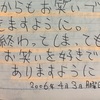 からもお笑いブ
ますように。
終わってしまっても
お笑いを好きで
ありますように
2006年4月3日月曜日